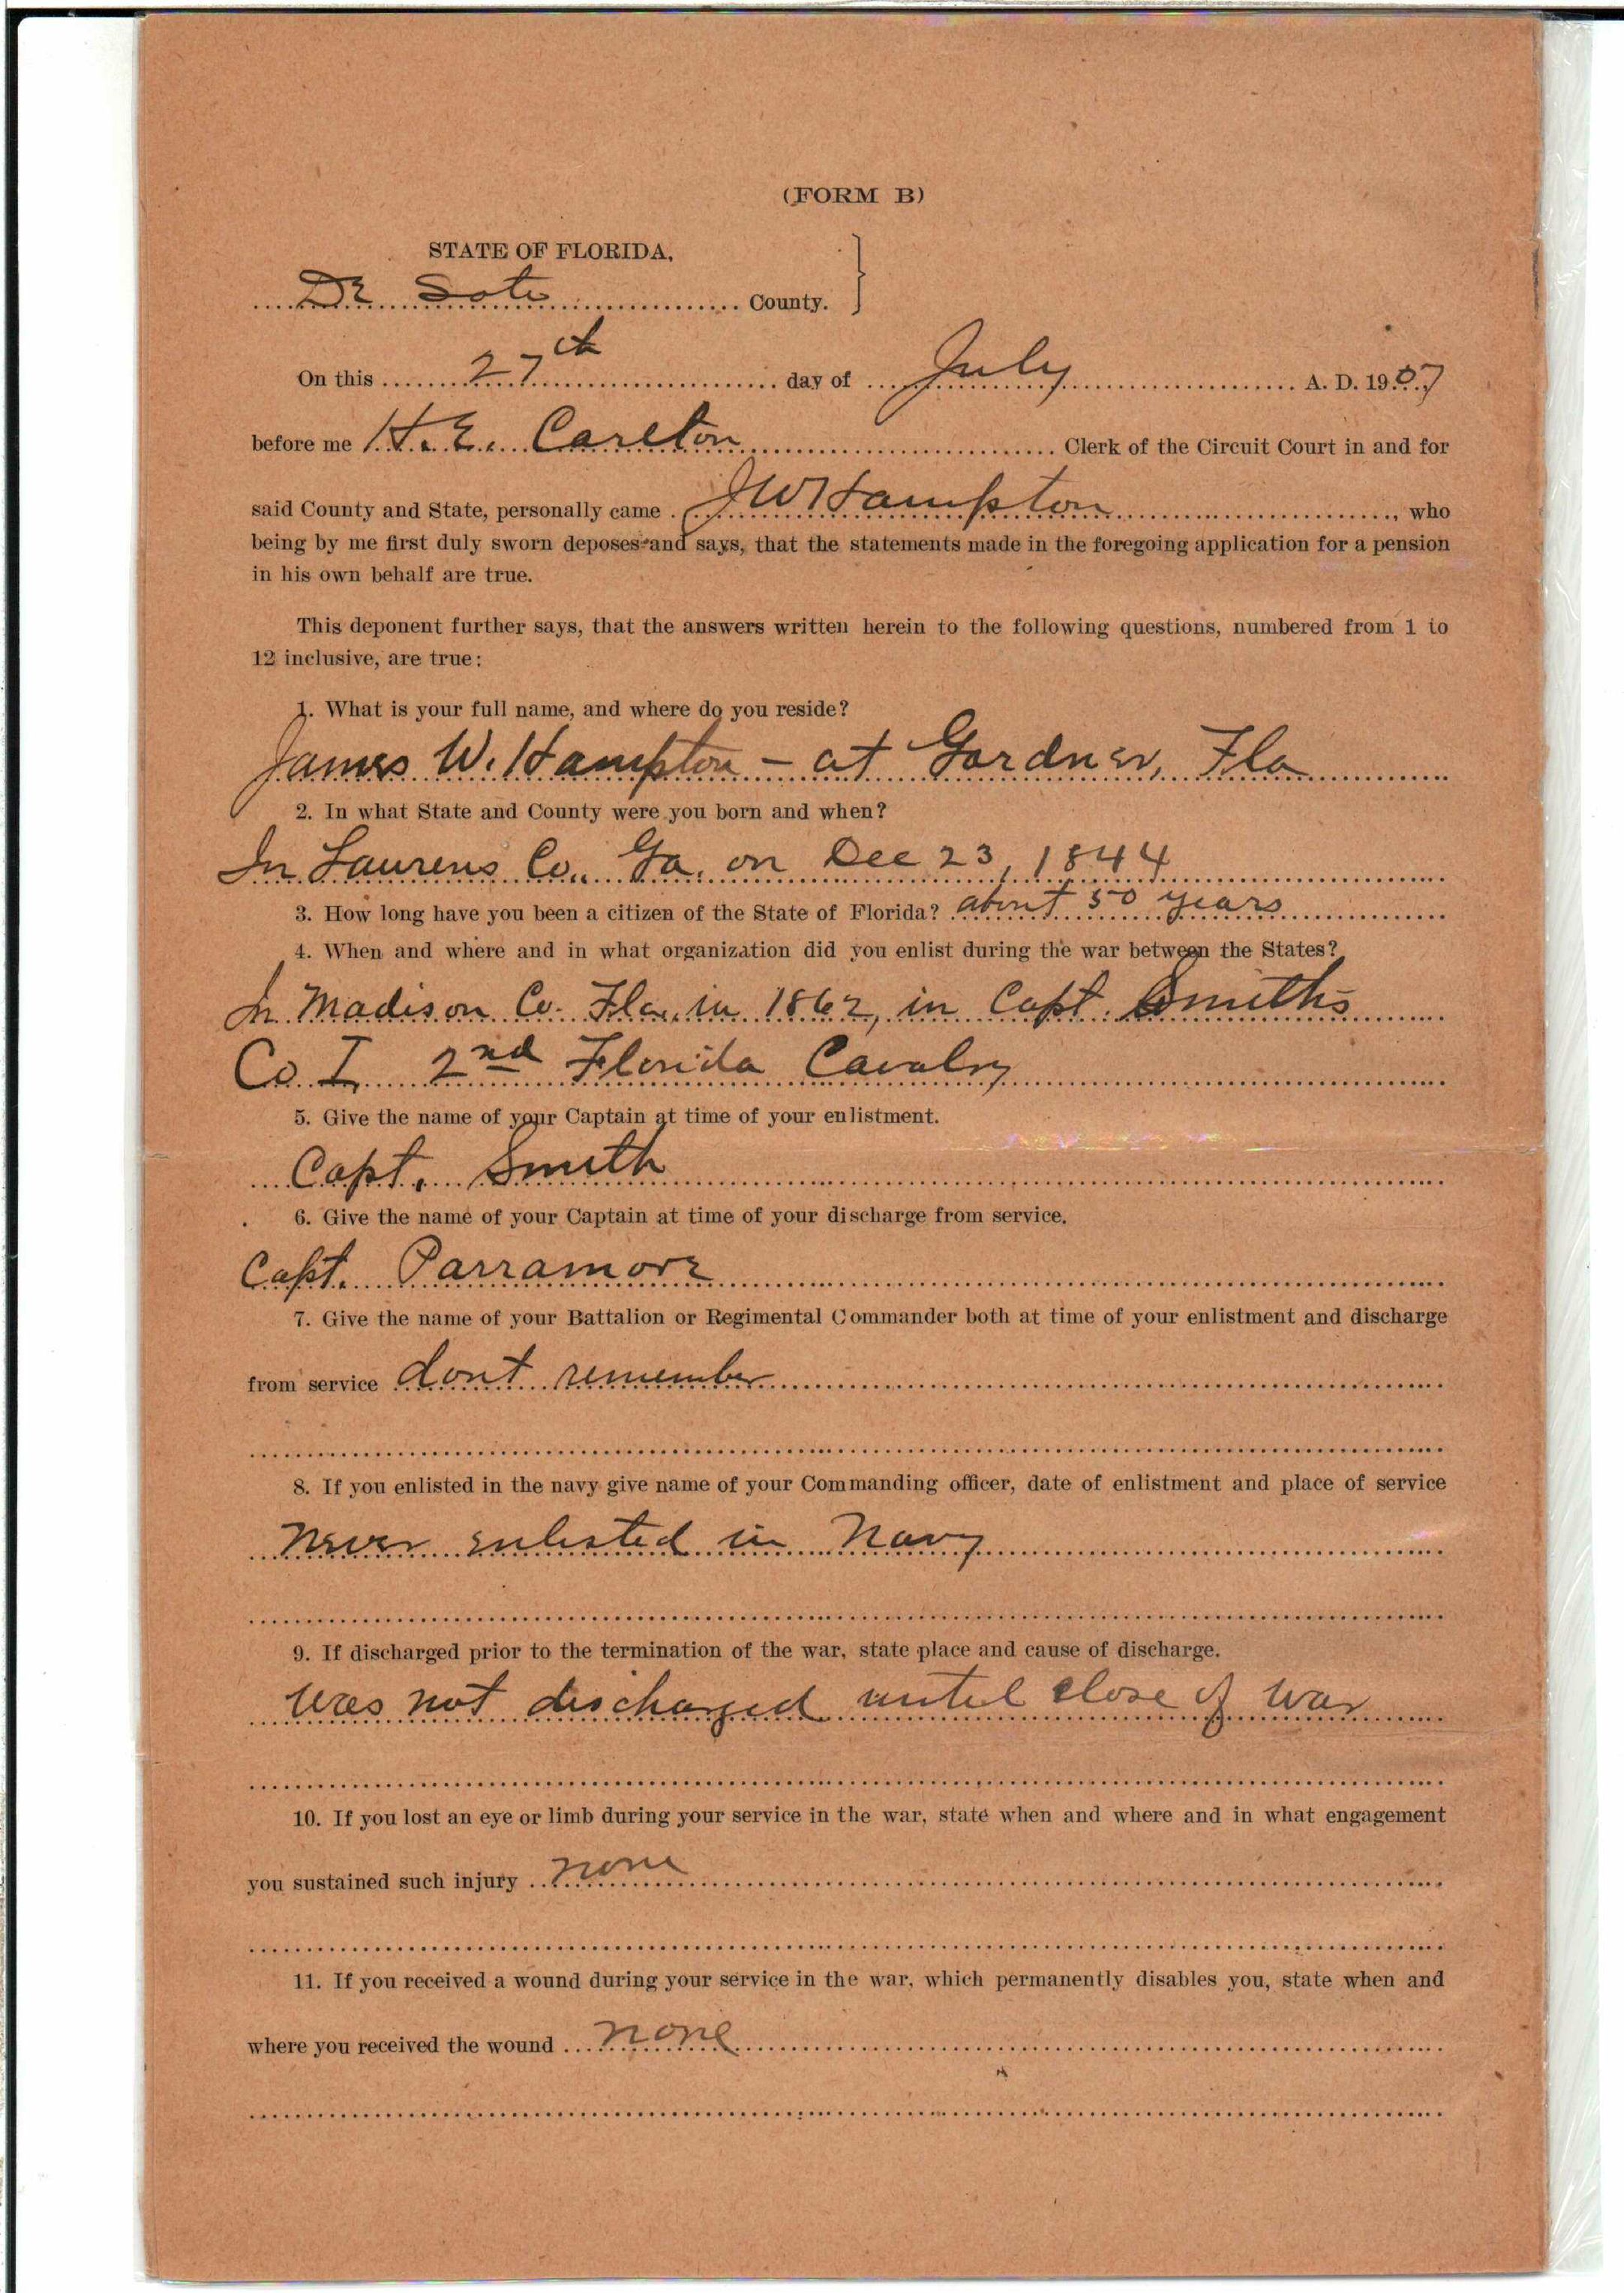 (FORM B)
STATE OF FLORIDA,
De Soto County.
On this 27th day of July A. D. 1907
before me H. E. Carlton Clerk of the Circuit Court in and for
said County and State, personally came J W Hampton, who
being by me first duly sworn deposes and says, that the statements made in the foregoing application for a pension
in his own behalf are true.
This deponent further says, that the answers written herein to the following questions, numbered from 1 to
12 inclusive, are true:
1. What is your full name, and where do you reside?
James W. Hampton - at Gardner, Fla
2. In what State and County were you born and when?
In Laurens Co., Ga. on Dec 23, 1844
3. How long have you been a citizen of the State of Florida? about 50 years
4. When and where and in what organization did you enlist during the war between the States?
In Madison Co. Fla. in 1862, in Capt. Smiths
Co. I, 2nd Florida Cavalry
5. Give the name of your Captain at time of your enlistment.
Capt. Smith
6. Give the name of your Captain at time of your discharge from service.
Capt. Parramore
7. Give the name of your Battalion or Regimental Commander both at time of your enlistment and discharge
from service dont remember
8. If you enlisted in the navy give name of your Commanding officer, date of enlistment and place of service
Never enlisted in Navy
9. If discharged prior to the termination of the war, state place and cause of discharge.
Was not discharged until close of War
10. If you lost an eye or limb during your service in the war, state when and where and in what engagement
you sustained such injury none
11. If you received a wound during your service in the war, which permanently disables you, state when and
where you received the wound none